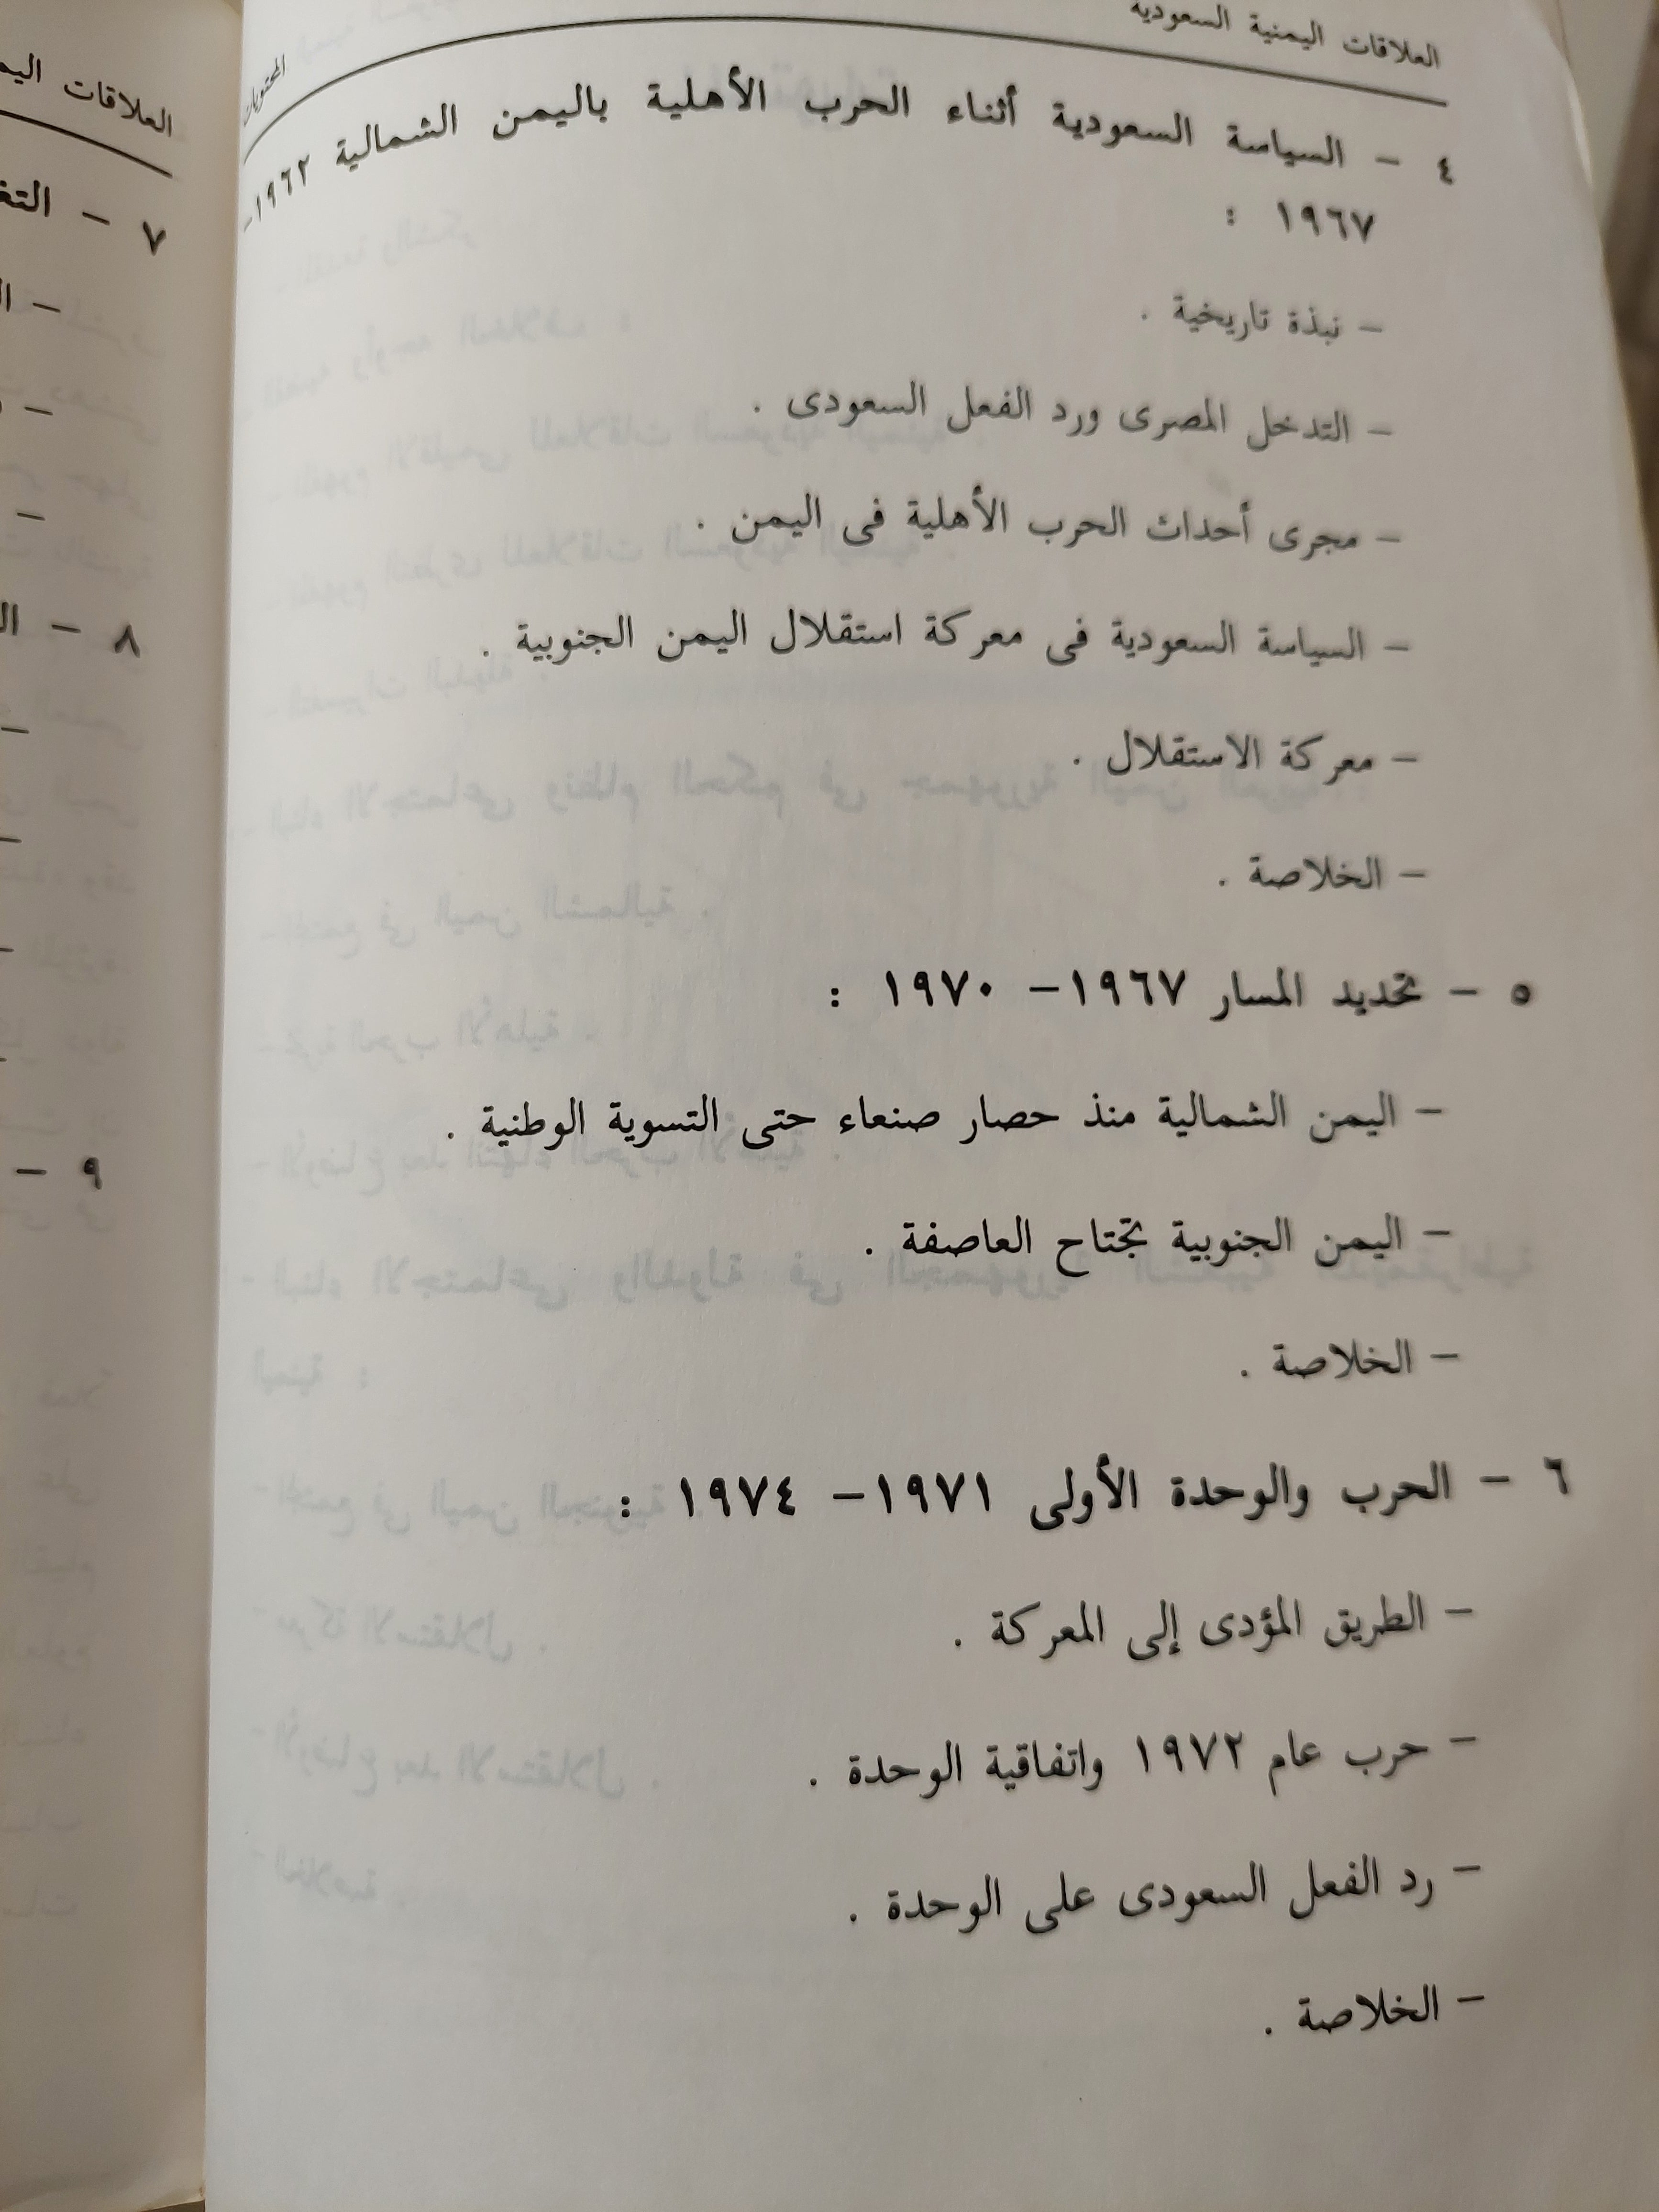 العلاقات اليمنية السعودية
المحتويات
٤ - السياسة السعودية أثناء الحرب الأهلية باليمن الشمالية ١٩٦٢-
١٩٦٧ :
- نبذة تاريخية .
- التدخل المصرى ورد الفعل السعودى .
- مجرى أحداث الحرب الأهلية فى اليمن .
- السياسة السعودية فى معركة استقلال اليمن الجنوبية .
- معركة الاستقلال .
- الخلاصة .
٥ - تحديد المسار ١٩٦٧- ١٩٧٠ :
- اليمن الشمالية منذ حصار صنعاء حتى التسوية الوطنية .
- اليمن الجنوبية تجتاح العاصفة .
- الخلاصة .
٦ - الحرب والوحدة الأولى ١٩٧١- ١٩٧٤ :
- الطريق المؤدى إلى المعركة .
- حرب عام ١٩٧٢ واتفاقية الوحدة .
- رد الفعل السعودى على الوحدة .
- الخلاصة .
العلاقات
٧ -
٨ -
٩ -